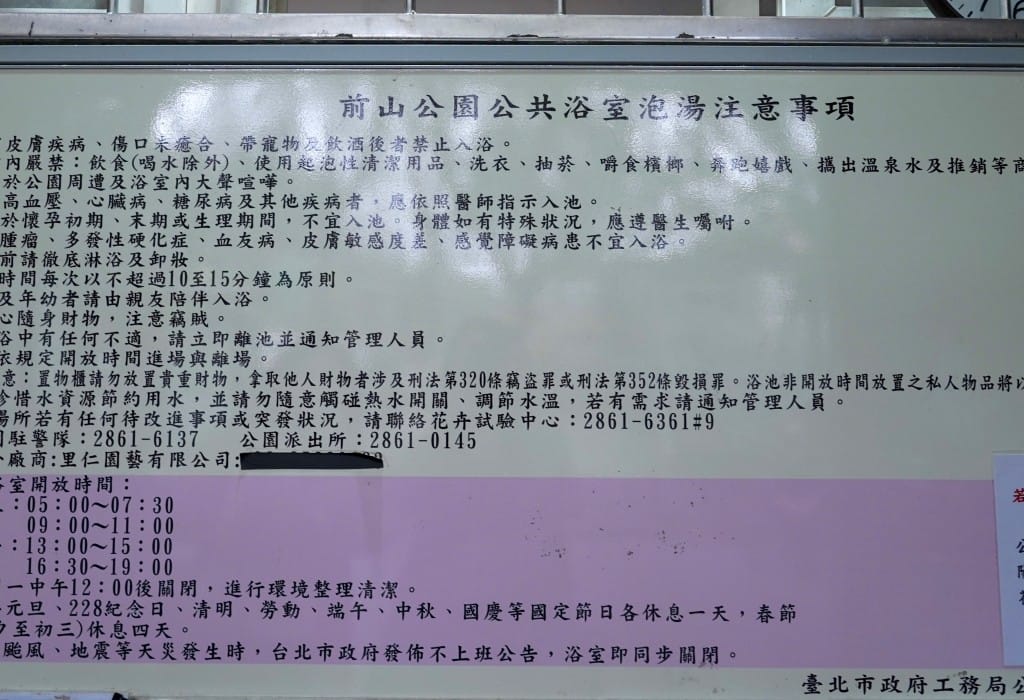 前山公園公共浴室泡湯注意事項
皮膚疾病、傷口未癒合、帶寵物及飲酒後者禁止入浴。
內嚴禁：飲食(喝水除外)、使用起泡性清潔用品、洗衣、抽菸、嚼食檳榔、奔跑嬉戲、攜出溫泉水及推銷等商
於公園周遭及浴室內大聲喧嘩。
高血壓、心臟病、糖尿病及其他疾病者，應依照醫師指示入池。
於懷孕初期、末期或生理期間，不宜入池。身體如有特殊狀況，應遵醫生囑咐。
腫瘤、多發性硬化症、血友病、皮膚敏感度差、感覺障礙病患不宜入浴。
前請徹底淋浴及卸妝。
時間每次以不超過10至15分鐘為原則。
及年幼者請由親友陪伴入浴。
心隨身財物，注意竊賊。
浴中有任何不適，請立即離池並通知管理人員。
依規定開放時間進場與離場。
意：置物櫃請勿放置貴重財物，拿取他人財物者涉及刑法第320條竊盜罪或刑法第352條毀損罪。浴池非開放時間放置之私人物品將以
珍惜水資源節約用水，並請勿隨意觸碰熱水開關、調節水溫，若有需求請通知管理人員。
場所若有任何待改進事項或突發狀況，請聯絡花卉試驗中心：2861-6361#9
駐警隊：2861-6137 公園派出所：2861-0145
廠商:里仁園藝有限公司:
浴室開放時間：
：05：00～07：30
09：00～11：00
：13：00～15：00
16：30～19：00
一中午12：00後關閉，進行環境整理清潔。
元旦、228紀念日、清明、勞動、端午、中秋、國慶等國定節日各休息一天，春節
至初三)休息四天。
颱風、地震等天災發生時，台北市政府發佈不上班公告，浴室即同步關閉。
若
公
臺北市政府工務局公